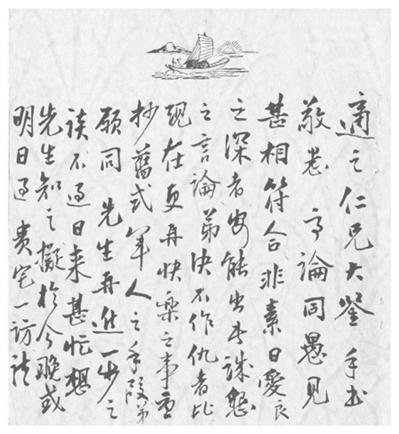 適之仁兄大鑒 手書
敬悉 高論同愚見
甚相符合非素日愛良
之深者安能出此誠懇
之言論弟決不作仇者比
現在更再快樂之事重
抄舊式軍人之手段弟
願同 先生再進一步之
談不過日來甚忙想
先生知之擬於今晚或
明日過 貴宅一訪請